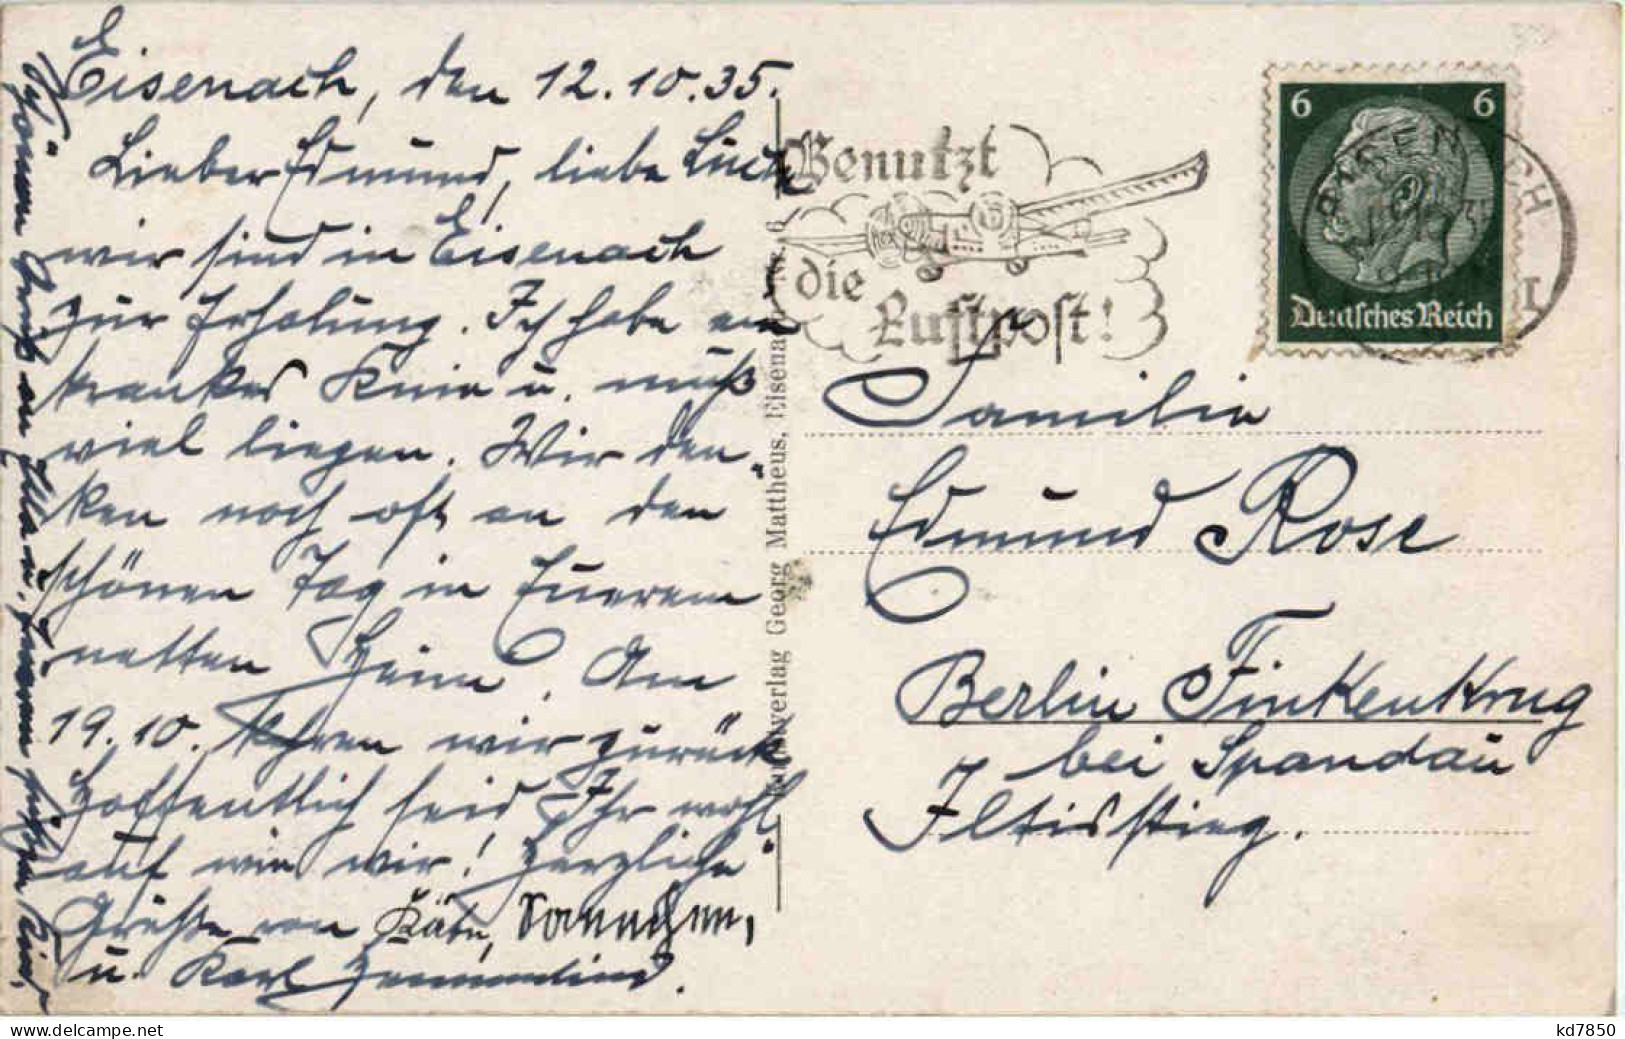 Eisenach, den 12.10.35.
Lieber Edmund, liebe
wir sind in Eisenach
zur Erholung. Ich habe ein
krankes Knie u. muß
viel liegen. Wir den-
ken noch oft an den
schönen Tag in Euerem
netten Heim. Am
19.10. fahren wir zurück
Hoffentlich seid Ihr wohl
auf wie wir! Herzliche
Grüße von Käte, Hannchen,
u. Karl
Schönen Gruß an Ella u. Ihren
Benutzt
die
Luftpost!
6 6
Deutsches Reich
EISENACH
1
Verlag Georg Mattheus, Eisenach Nr. 6
Familie
Edmund Rose
Berlin Finkenkrug
bei Spandau
Iltisstieg.
kd7850